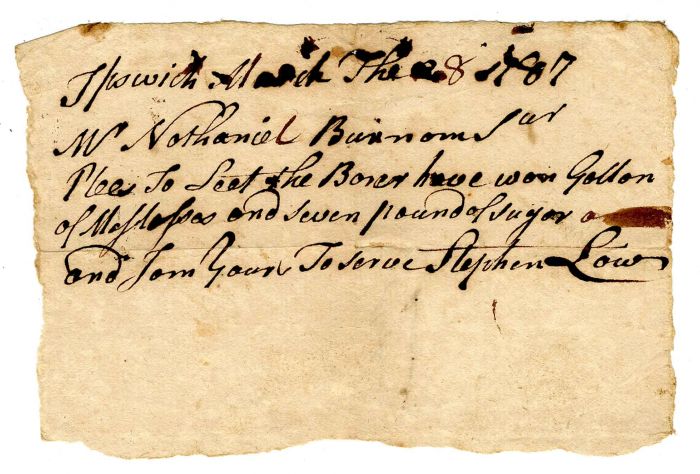 Ipswich March The 28 1787
Mr Nathaniel Burnom Sar
Plees To Leet the Borer have won Gallon
of Mollasses and seven pound of sugar a
and I am Yours To serve Stephen Low